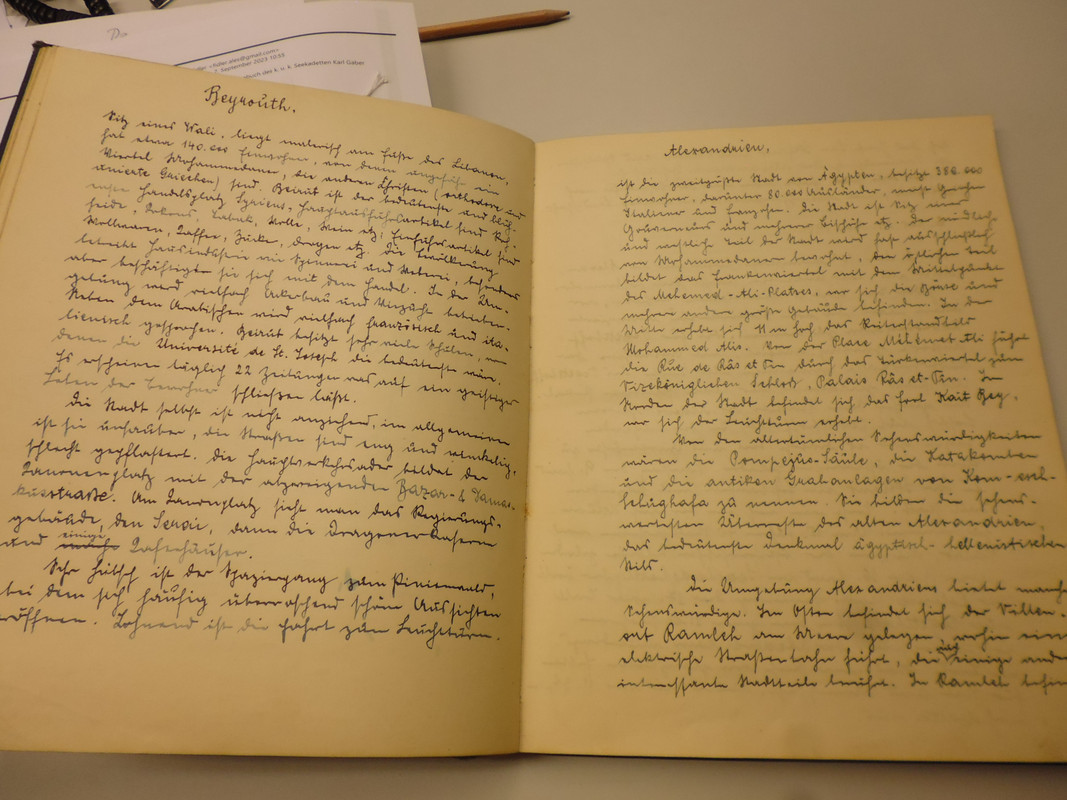 <ruler.alex@gmail.com>
7. September 2023 10:55
buch des k. u. k. Seekadetten Karl Gaber
Beyrouth.
Sitz eines Wali, liegt malerisch am Fuße des Libanon,
hat etwa 140.000 Einwohner, von denen ungefähr ein
Viertel Mohammedaner, die anderen Christen (orthodoxe und
unierte Griechen) sind. Beirut ist der bedeutenste und blüh-
enste Handelsplatz Syriens, Hauptausfuhrsartikel sind Roh-
seide, Kokons, Tabak, Wolle, Wein etz, Einfuhrsartikel sind
Wollwaren, Kaffee, Zucker, Drogen etz. Die Bevölkerung
betreibt Hausindustrie wie Spinnerei und Weberei, besonders
aber beschäftigt sie sich mit dem Handel. In der Um-
gebung wird vielfach Ackerbau und Viezucht betrieben.
Neben dem Arabischen wird vielfach französisch und ita-
lienisch gesprochen. Beirut besitzt sehr viele Schulen, von
denen die Université de St. Joseph die bedeutenste wäre.
Es erscheinen täglich 22 Zeitungen was auf ein geistiges
Leben der Bewohner schließen läßt.
Die Stadt selbst ist nicht anziehend, im allgemeinen
ist sie unsauber, die Straßen sind eng und winkelig,
schlecht gepflastert. Die Hauptverkehrsader bildet der
Kanonenplatz mit der abzweigenden Bazar- & Damas-
kusstraße. Am Kanonplatz sieht man das Regierungs-
gebäude, den Serail, dann die Dragonerkaserne
und einige Kafeehäuser.
Sehr hübsch ist der Spaziergang zum Pinienwald,
bei dem sich häufig überraschend schöne Aussichten
eröffnen. Lohnend ist die Fahrt zum Leuchtturm.
Alexandrien,
ist die zweitgrößte Stadt von Ägypten, besitzt 380.000
Einwohner, darunter 80.000 Ausländer, meist Griechen
Italiener und Franzosen. Die Stadt ist Sitz eines
Gouverneurs und mehrerer Bischöfe etz. Der nördliche
und westliche Teil der Stadt wird fast ausschließlich
von Mohammedanern bewohnt, den östlichen Teil
bildet das Frankenviertel mit dem Mittelpunkte
des Mehemed-Ali-Platzes, wo sich die Börse und
mehrere andere große Gebäude befinden. In der
Mitte erhebt sich 11 m hoch das Reiterstandbild
Mohammed Alis. Von der Place Mehemet Ali führt
die Rue de Râs et Tin durch das Türkenviertel zum
Vizeköniglichen Schloß, Palais Râs et-Tin. Im
Norden der Stadt befindet sich das Fort Kait Bey,
wo sich der Leuchtturm erhebt.
Von den altertümlichen Sehenswürdigkeiten
wären die Pompejus-Säule, die Katakomben
und die antiken Grabanlagen von Kom-esch-
schughafa zu nennen. Sie bilden die sehens-
wertesten Überreste des alten Alexandrien,
das bedeutenste Denkmal ägyptisch-hellenistischen
Stils.
Die Umgebung Alexandriens bietet manch
Sehenswürdige. Im Osten befindet sich der Villen-
ort Ramleh am Meere gelegen, wohin eine
elektrische Straßenbahn führt, die einige andere
interessante Stadtteile berührt. In Ramleh befin